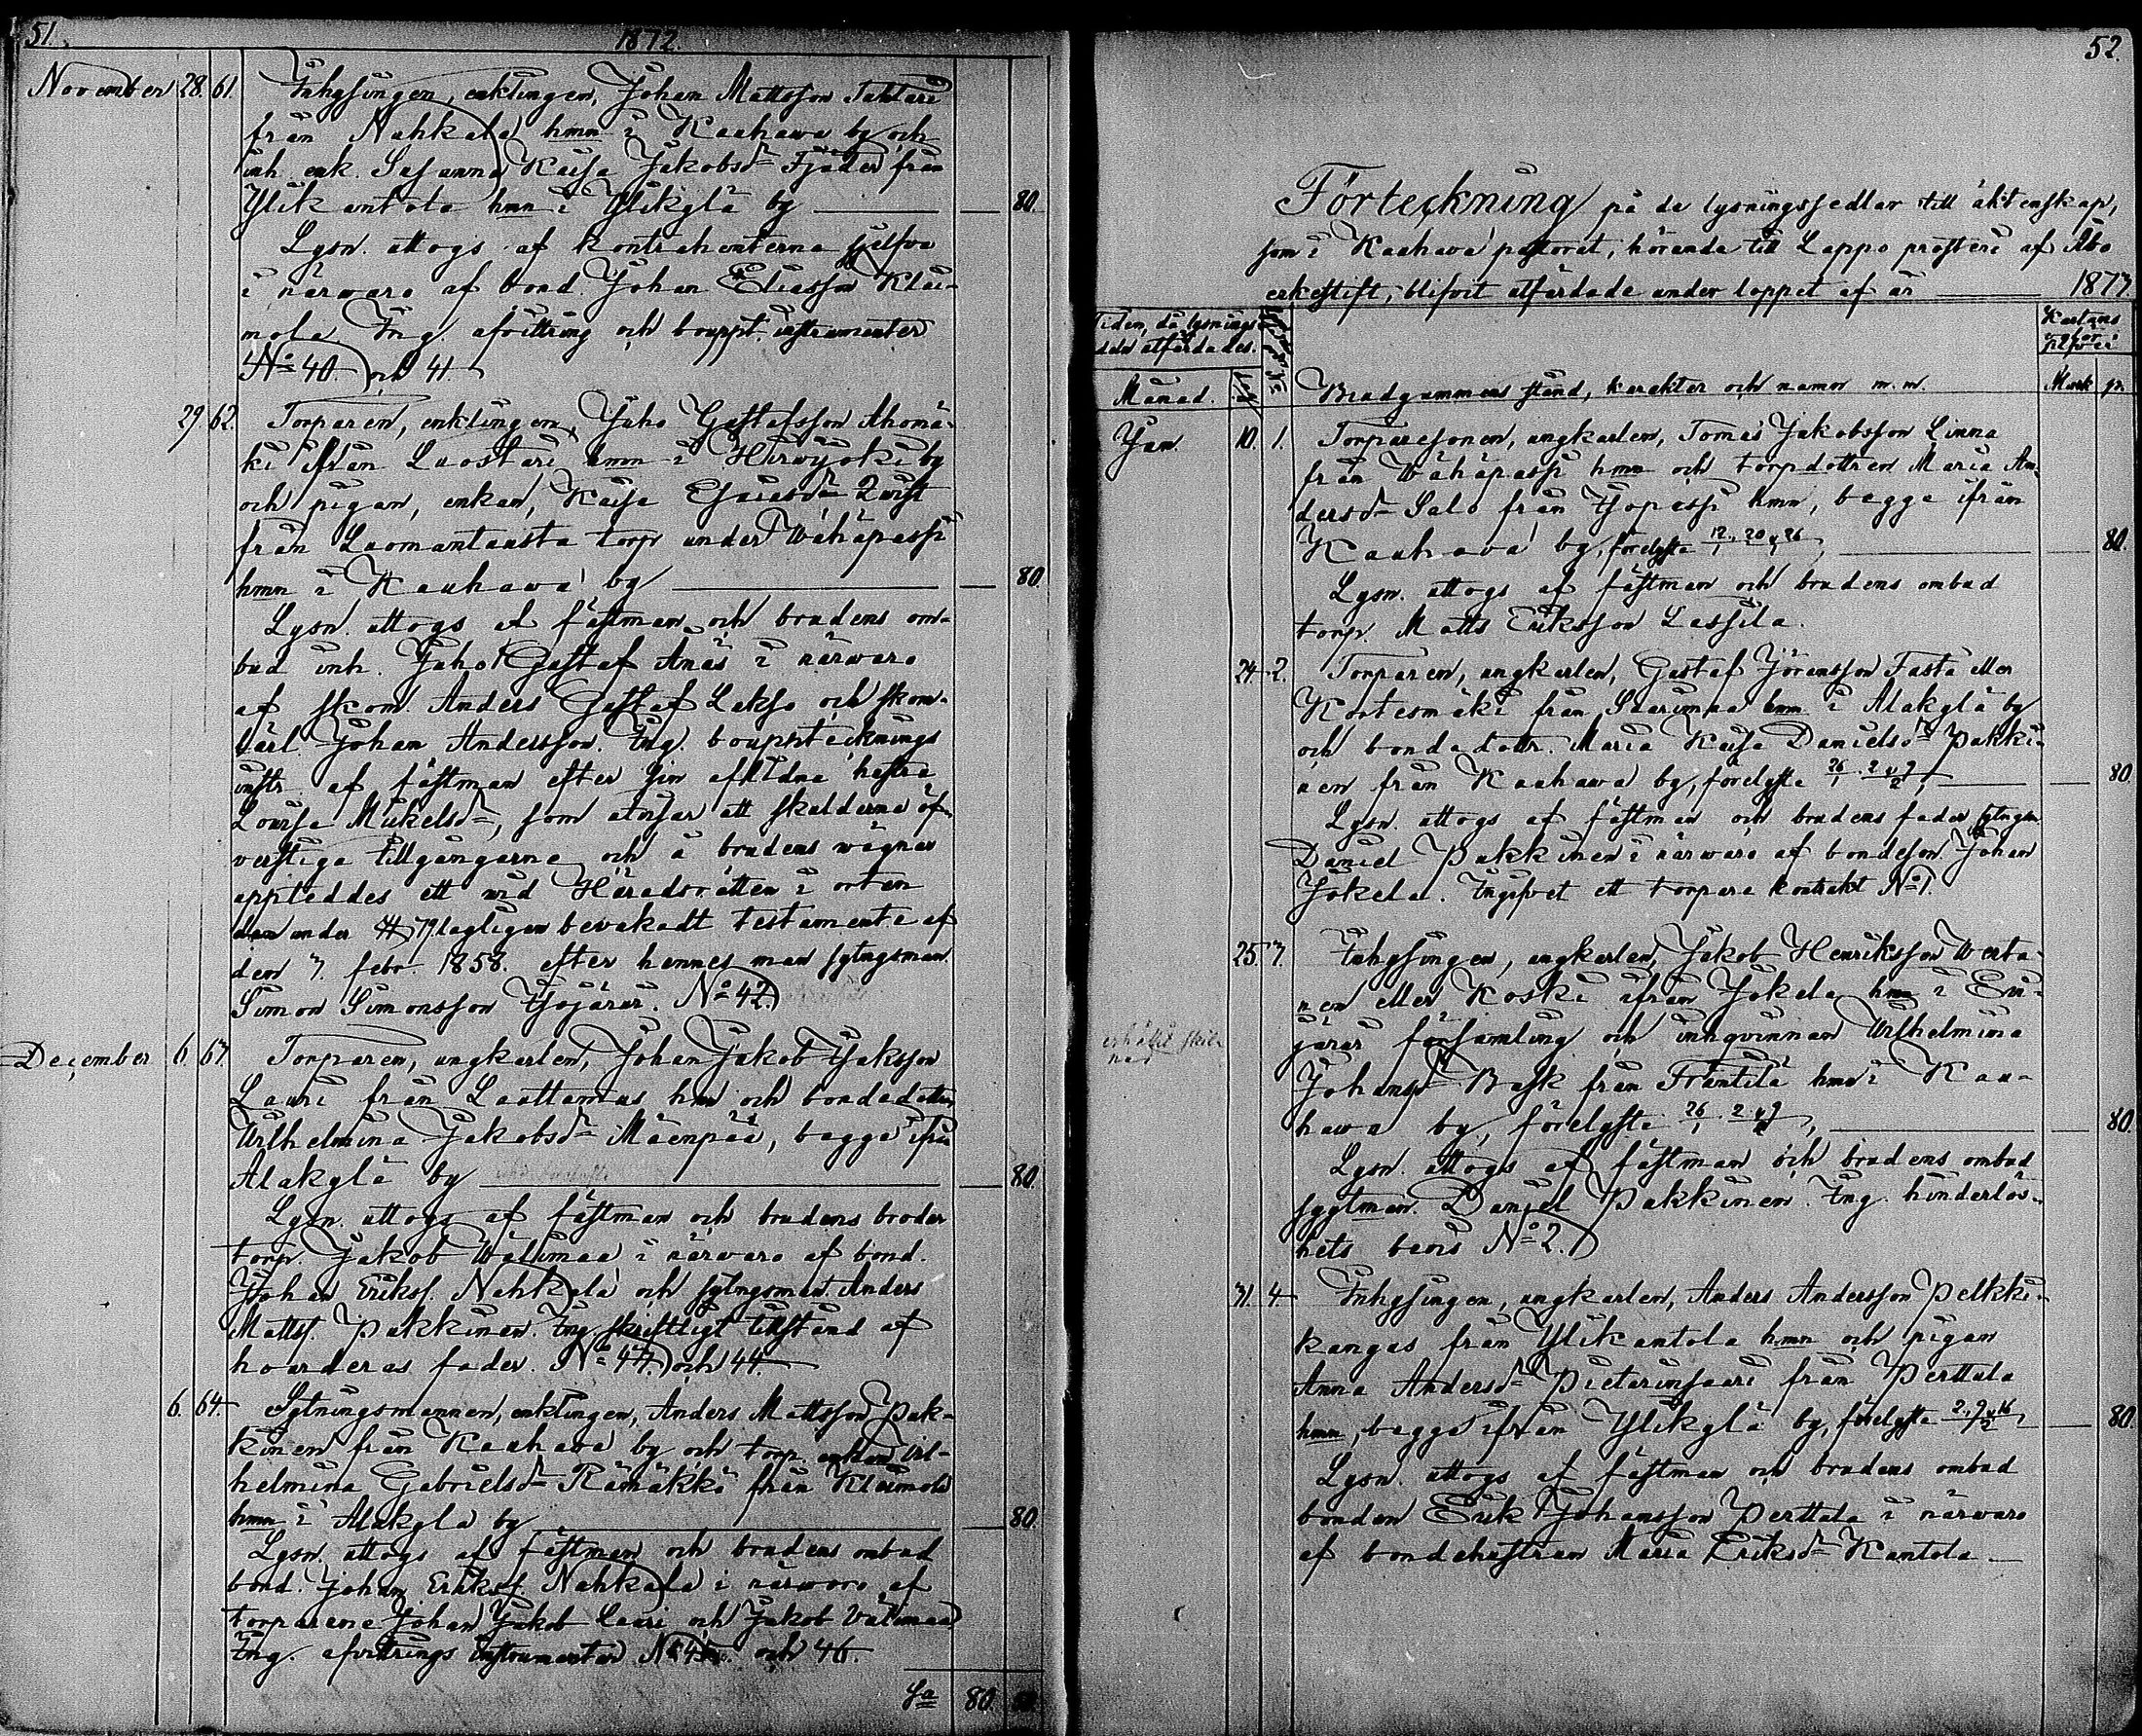 51.
1872.
November 28. 61. Inhysingen, enklingen, Johan Mattsson Taktari
från Nahkala hmn i Kauhawa by och
inh. enk. Susanna Kaisa Jakobsdr Fjäder från
Ylikantola hmn i Ylikylä by — 80.
Lysn. uttogs af kontrahenterna sjelfva
i närwaro af bond. Johan Eliasson Klei-
mola. Ing. afvittring och bouppt. instrumenter
No 40. och 41.
29. 62. Torparen, enklingen, Juho Gustafsson Ahomä-
ki från Luostari hmn i Hirvijoki by
och pigan, enkan, Kaisa Esaiasdr Qvist
från Luomantausta torp under Wähäpassi
hmn i Kauhawa by — 80.
Lysn. uttogs af fästman och brudens om-
bud inh. Juho Gustaf Anäs i närwaro
af skom. Anders Gustaf Lakso och skom.
lärl. Johan Andersson. Ing. bouppteknings
instr. af fästman efter sin aflidna hustru
Lovisa Mickelsdr, som utvisar att skulderna öf-
verstiga tillgångarna och å brudens wägnar
uppteddes ett wid Häradsrätten i orten
under § 79 lagligen bevakadt testamente af
den 3. febr. 1858. efter hennes man sytngsman
Simon Simonsson Isojärvi. No 42.
December 6. 63. Torparen, ungkarlen, Johan Jakob Isaksson
Lauri från Luottamus hmn och bondedottren
Wilhelmina Jakobsdr Mäenpää, begge ifrån
Alakylä by — 80.
Lysn. uttogs af fästman och brudens broder
torp. Jakob Wälimaa i närwaro af bond.
Johan Erikss. Nahkala och sytngsman. Anders
Mattss. Pakkinen. Ing. skriftligt tillstånd af
hvarderas fader. No 43. och 44.
6. 64. Sytningsmannen, enklingen, Anders Mattsson Pak-
kinen från Kauhava by och torp. enkan Vil-
helmina Gabrielsdr Rämäkkö från Kleimola
hmn i Alakylä by — 80.
Lysn. uttogs af fästman och brudens ombud
bond. Johan Erikss. Nahkala i närwaro af
torparene Johan Jakob Lauri och Jakob Välimaa
Ing. afvittrings instrumenter No 45. och 46.
Sa 80.
52.
Förteckning på de lysningssedlar till äktenskap,
som i Kauhava pastorat, hörande till Lappo prosteri af Åbo
erkestift, blifvit utfärdade under loppet af år — 1873.
Tiden, då lysnings-
deln utfärdades. Kartans
Månad. Brudgummens stånd, karakter och namn m. m. Mark pi
Jan. 10. 1. Torparesonen, ungkarlen, Tomas Jakobsson Linna
från Wähäpassi hmn och torpdottren Maria An-
dersdr Salo från Isopassi hmn, begge ifrån
Kauhava by, förelyste 12, 20 & 26 — 80.
Lysn. uttogs af fästman och brudens ombud
torp. Matts Eriksson Lassila.
24. 2. Torparen, ungkarlen, Gustaf Jöransson Fasta eller
Kortesmäki från Saarimaa hmn i Alakylä by
och bondedottr. Maria Kaisa Danielsdr Pakki-
nen från Kauhawa by, förelyste 26/1. 2 & 9/2 — 80
Lysn. uttogs af fästman och brudens fader sytngm.
Daniel Pakkinen i närwaro af bondeson Johan
Jokela. Ingifvet ett torpare kontrakt No 1.
25. 3. Inhysingen, ungkarlen, Jakob Henriksson Werta-
nen eller Koski ifrån Jokela hmn i Evi-
järvi församling och inhqvinnan Wilhelmina
Johansdr Bask från Frantilä hmn i Kau-
hawa by, förelyste 26/1. 2 & 9/2, — 80.
Lysn. uttogs af fästman och brudens ombud
sygtman. Daniel Pakkinen. Ing. hinderlös-
hets bevis No 2.
31. 4. Inhysingen, ungkarlen, Anders Andersson Pelkki-
kangas från Ylikantola hmn och pigan
Anna Andersdr Pietarinsaari från Perttula
hmn, begge ifrån Ylikylä by, förelyste 2, 9 & 16/2 — 80.
Lysn. uttogs af fästman och brudens ombud
bonden Erik Johansson Perttula i närwaro
af bondehustrun Maria Eriksdr Kantola. —